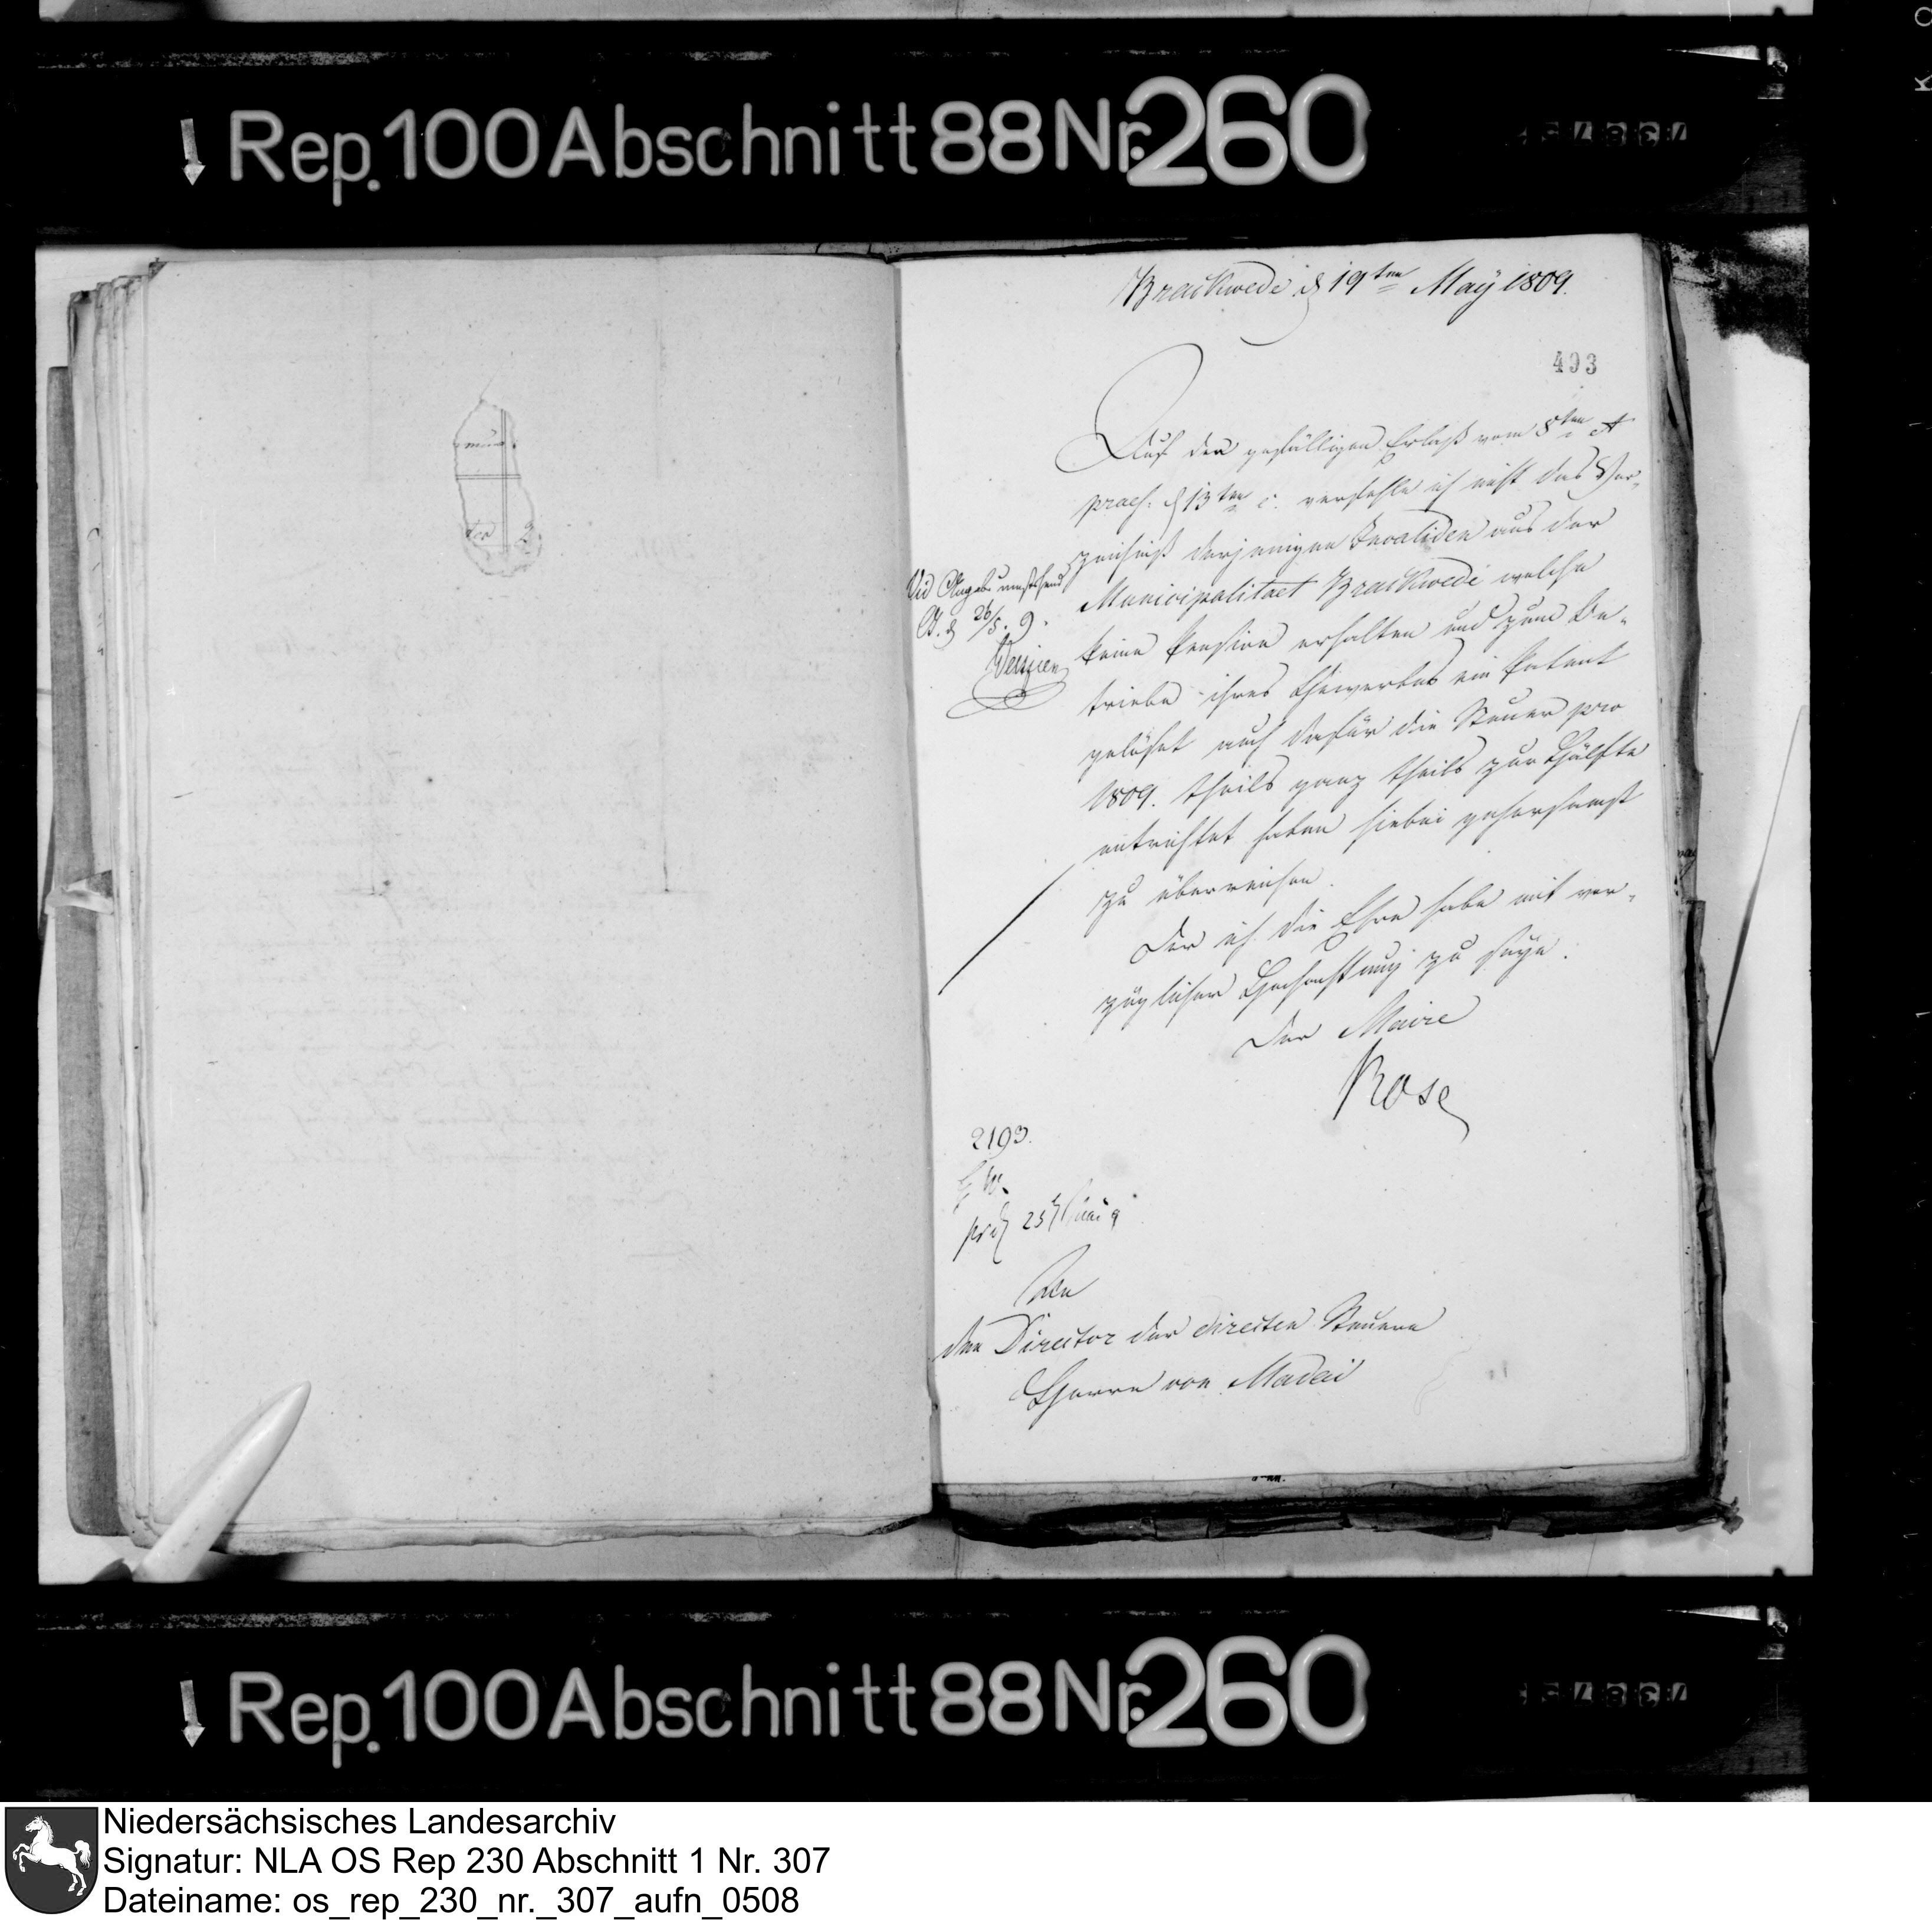 Rep. 100 Abschnitt 88 Nr. 260
Brackwede d 19ten May 1809.
493
Auf den gefälligen Erlaß vom 8ten et
praes. d 13ten c. verfehle ich nicht das Ver-
zeichniß derjenigen Invaliden aus der
Municipalitaet Brackwede welche
keine Pension erhalten und zum Be-
triebe ihres Gewerbes ein Patent
gelöset auch dafür die Steuer pro
1809. theils ganz theils zur Hälfte
entrichtet haben hiebei gehorsamst
zu überreichen.
Der ich die Ehre habe mit vor-
züglicher Hochachtung zu seyn.
Der Maire
Rose
26/5. 9.
2193.
An
den Director der directen Steuern
Herrn von Madai
Rep. 100 Abschnitt 88 Nr. 260
Niedersächsisches Landesarchiv
Signatur: NLA OS Rep 230 Abschnitt 1 Nr. 307
Dateiname: os_rep_230_nr._307_aufn_0508